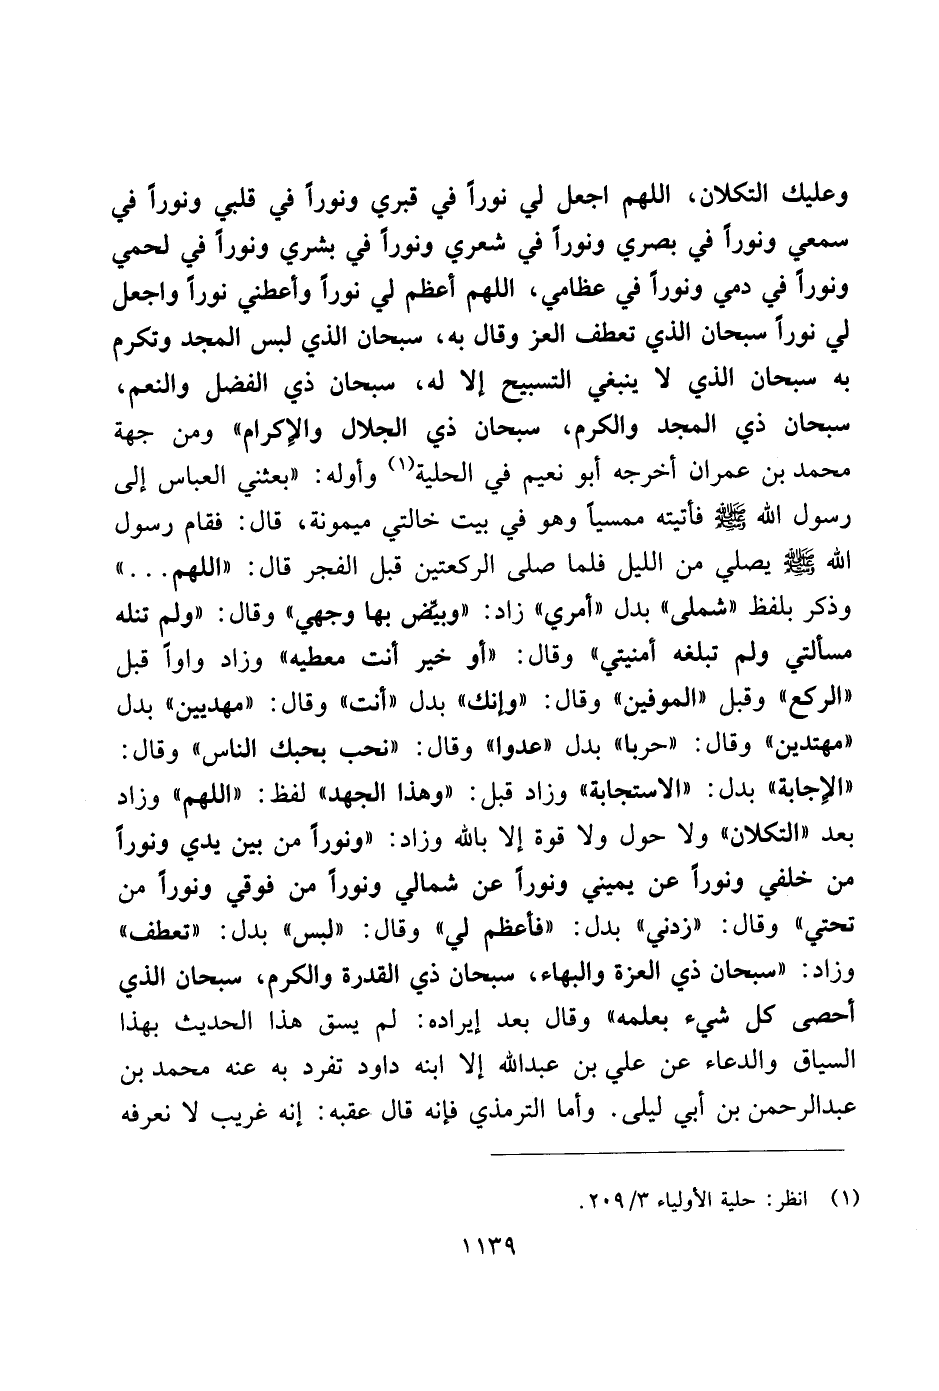 وعليك التكلان، اللهم اجعل لي نوراً في قبري ونوراً في قلبي ونوراً في
سمعي ونوراً في بصري ونوراً في شعري ونوراً في بشري ونوراً في لحمي
ونوراً في دمي ونوراً في عظامي، اللهم أعظم لي نوراً وأعطني نوراً واجعل
لي نوراً سبحان الذي تعطف العز وقال به، سبحان الذي لبس المجد وتكرم
به سبحان الذي لا ينبغي التسبيح إلا له، سبحان ذي الفضل والنعم،
سبحان ذي المجد والكرم، سبحان ذي الجلال والإكرام» ومن جهة
محمد بن عمران أخرجه أبو نعيم في الحلية(١) وأوله: «بعثني العباس إلى
رسول الله ﷺ فأتيته ممسياً وهو في بيت خالتي ميمونة، قال: فقام رسول
الله ﷺ يصلي من الليل فلما صلى الركعتين قبل الفجر قال: «اللهم...»
وذكر بلفظ «شملي» بدل «أمري» زاد: «وبيّض بها وجهي» وقال: «ولم تنله
مسألتي ولم تبلغه أمنيتي» وقال: «أو خير أنت معطيه» وزاد واواً قبل
«الركع» وقبل «الموفين» وقال: «وإنك» بدل «أنت» وقال: «مهديين» بدل
«مهتدين» وقال: «حربا» بدل «عدوا» وقال: «نحب بحبك الناس» وقال:
«الإجابة» بدل: «الاستجابة» وزاد قبل: «وهذا الجهد» لفظ: «اللهم» وزاد
بعد «التكلان» ولا حول ولا قوة إلا بالله وزاد: «ونوراً من بين يدي ونوراً
من خلفي ونوراً عن يميني ونوراً عن شمالي ونوراً من فوقي ونوراً من
تحتي» وقال: «زدني» بدل: «فأعظم لي» وقال: «لبس» بدل: «تعطف»
وزاد: «سبحان ذي العزة والبهاء، سبحان ذي القدرة والكرم، سبحان الذي
أحصى كل شيء بعلمه» وقال بعد إيراده: لم يسق هذا الحديث بهذا
السياق والدعاء عن علي بن عبدالله إلا ابنه داود تفرد به عنه محمد بن
عبدالرحمن بن أبي ليلى. وأما الترمذي فإنه قال عقبه: إنه غريب لا نعرفه
(١) انظر: حلية الأولياء ٢٠٩/٣.
١١٣٩